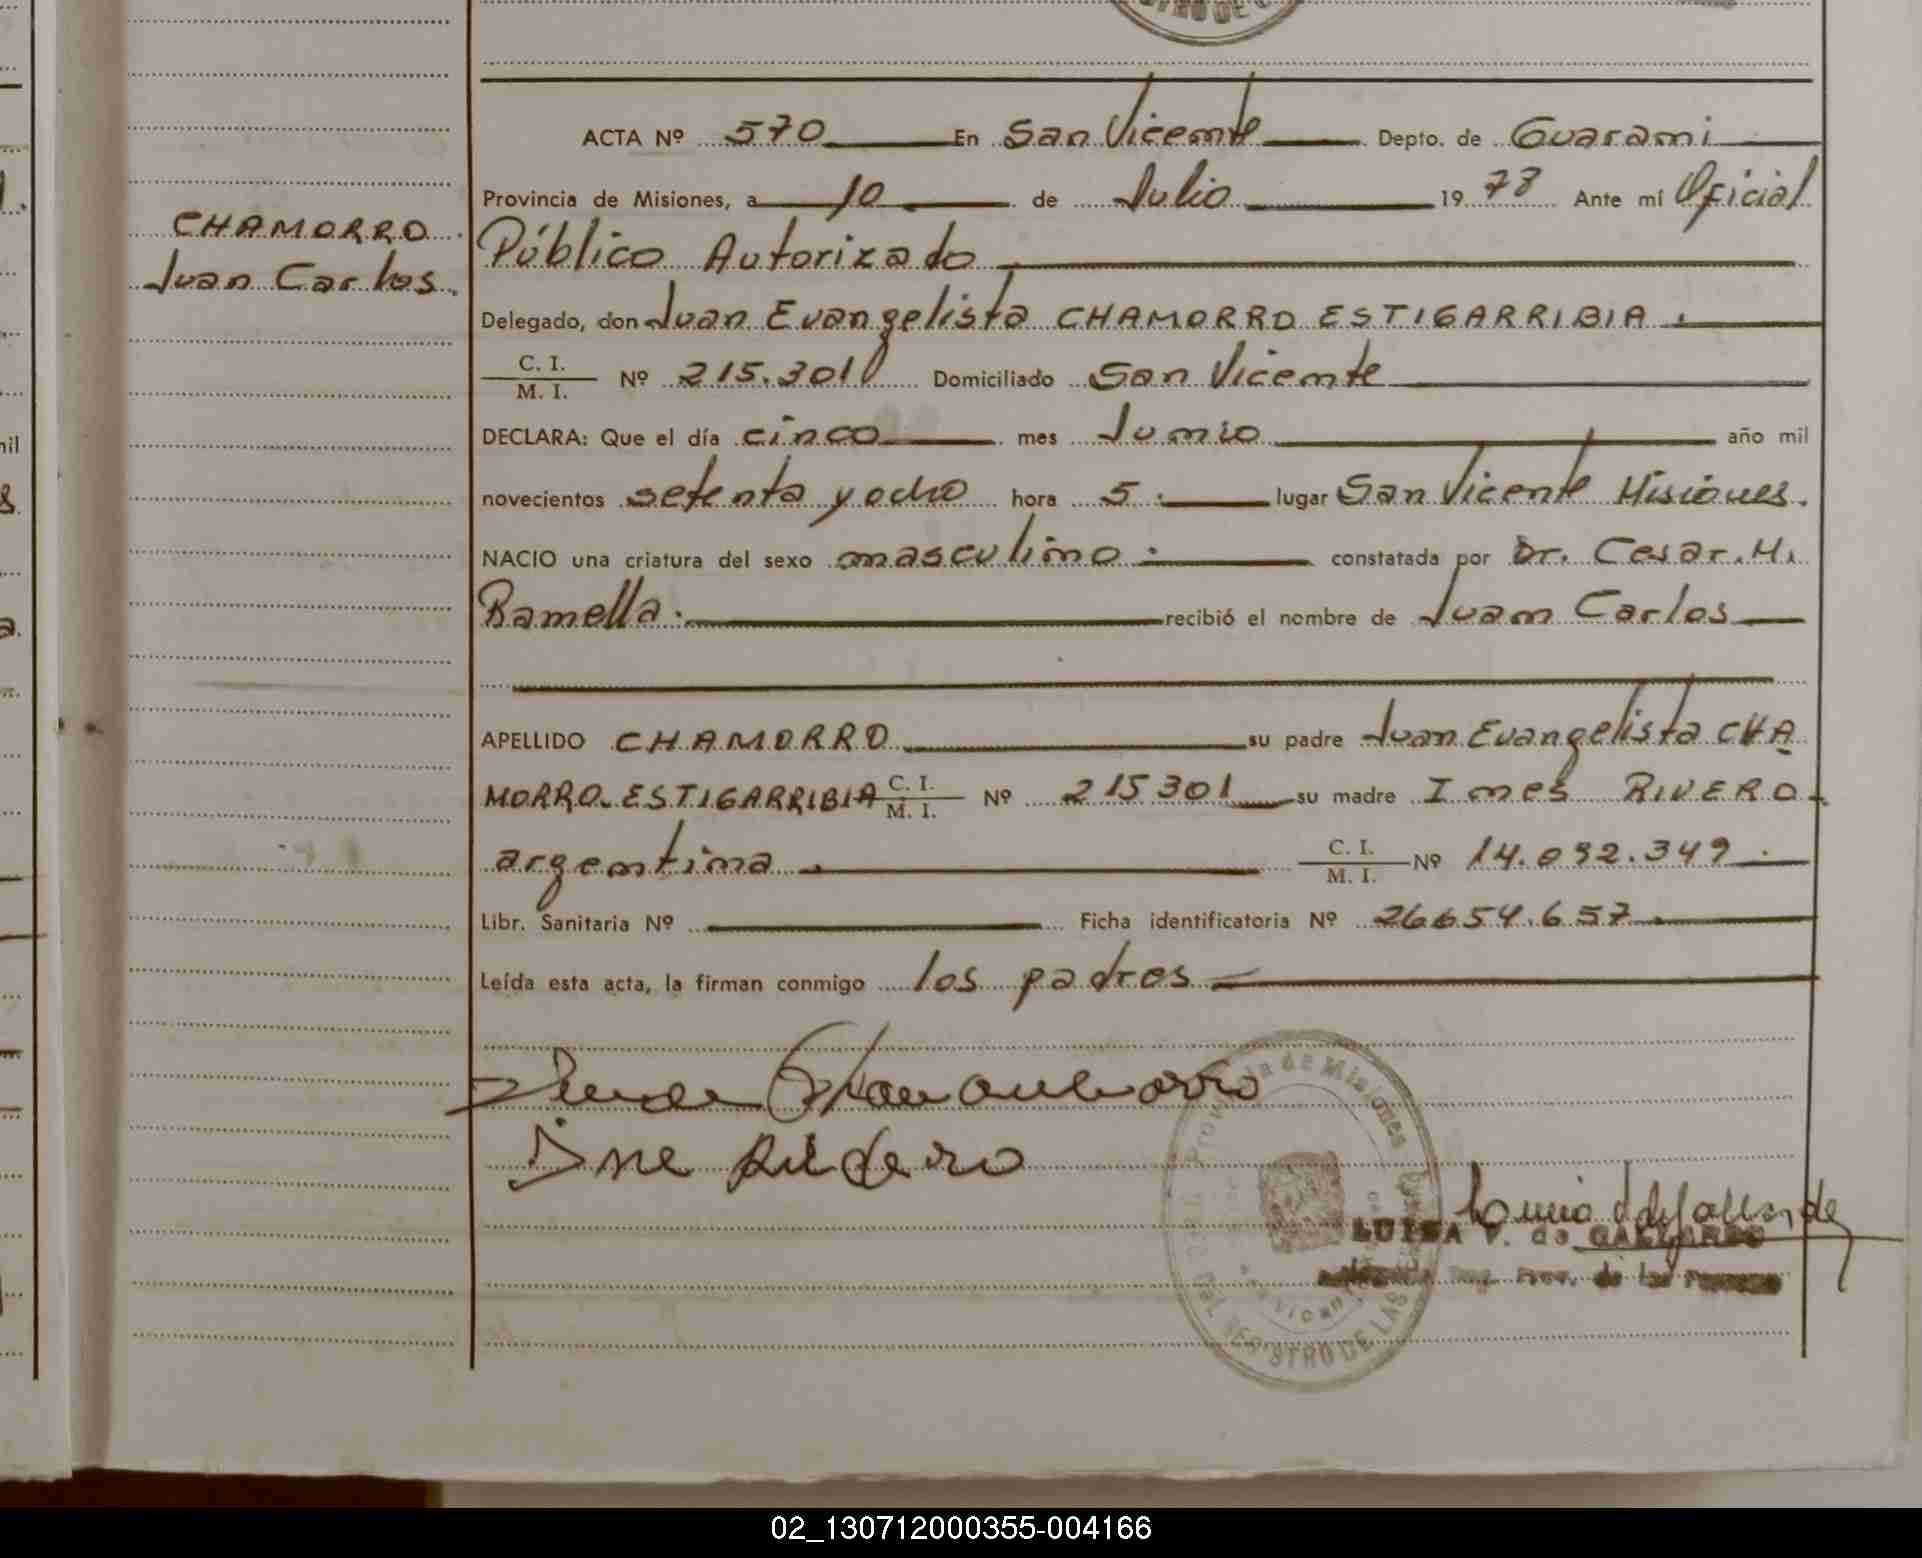 STRO DE
ACTA Nº 570 En San Vicente Depto. de Guarani
Provincia de Misiones, a 10 de Julio 19 78 Ante mí Oficial
CHAMORRO
Juan Carlos.
Público Autorizado
Delegado, don Juan Evangelista CHAMORRO ESTIGARRIBIA.
C. I.
M. I. Nº 215.301 Domiciliado San Vicente
DECLARA: Que el día cinco mes Junio año mil
novecientos setenta y ocho hora 5. lugar San Vicente Misiones.
NACIO una criatura del sexo masculino. constatada por Dr. Cesar. M.
Ramella. recibió el nombre de Juan Carlos
APELLIDO CHAMORRO su padre Juan Evangelista CHA
MORRO ESTIGARRIBIA C. I. M. I. Nº 215301 su madre Ines RIVERO
argentina. C. I. M. I. Nº 14.092.349.
Libr. Sanitaria Nº Ficha identificatoria Nº 26654.657.
Leída esta acta, la firman conmigo los padres
Provincia de Misiones
REGISTRO DE LAS
LUISA V. de GALLARDO
Prov. de las Personas
02_130712000355-004166